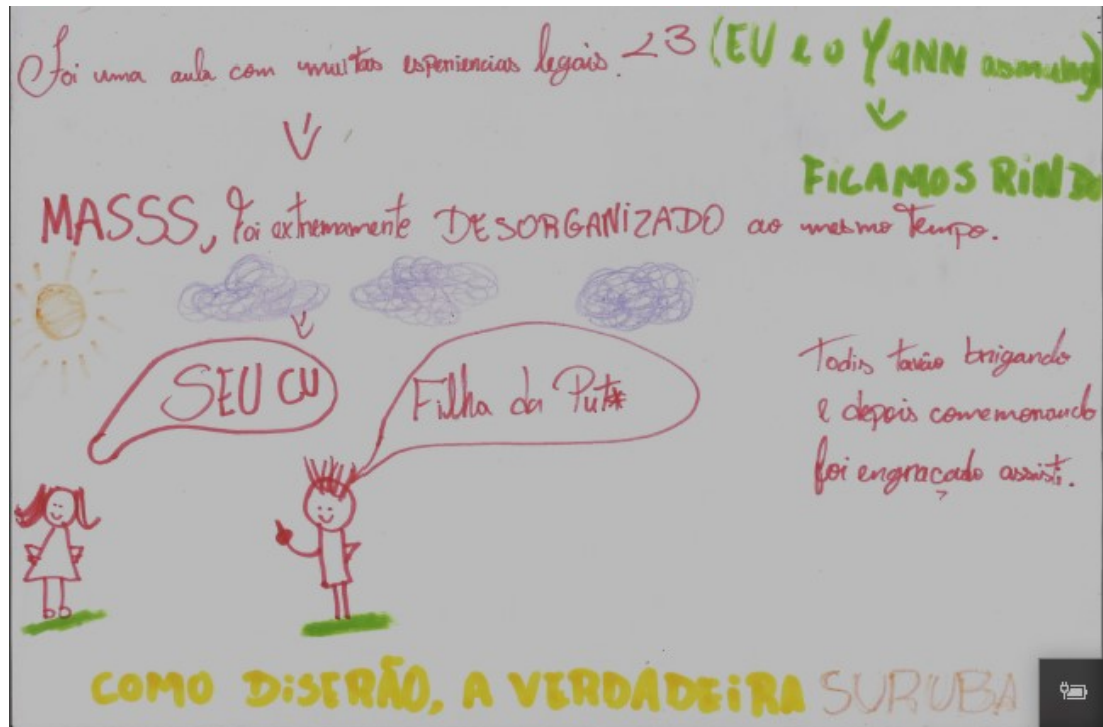 Foi uma aula com muitas esperiencias legais. <3 (EU e o YANN
FICAMOS RINDO
MASSS, foi extremamente DESORGANIZADO ao mesmo tempo.
SEU CU
Filha da Put*
Todis tavão brigando
e depois comemorando
foi engraçado assisti.
COMO DiSERÃO, A VERDADEiRA SURUBA